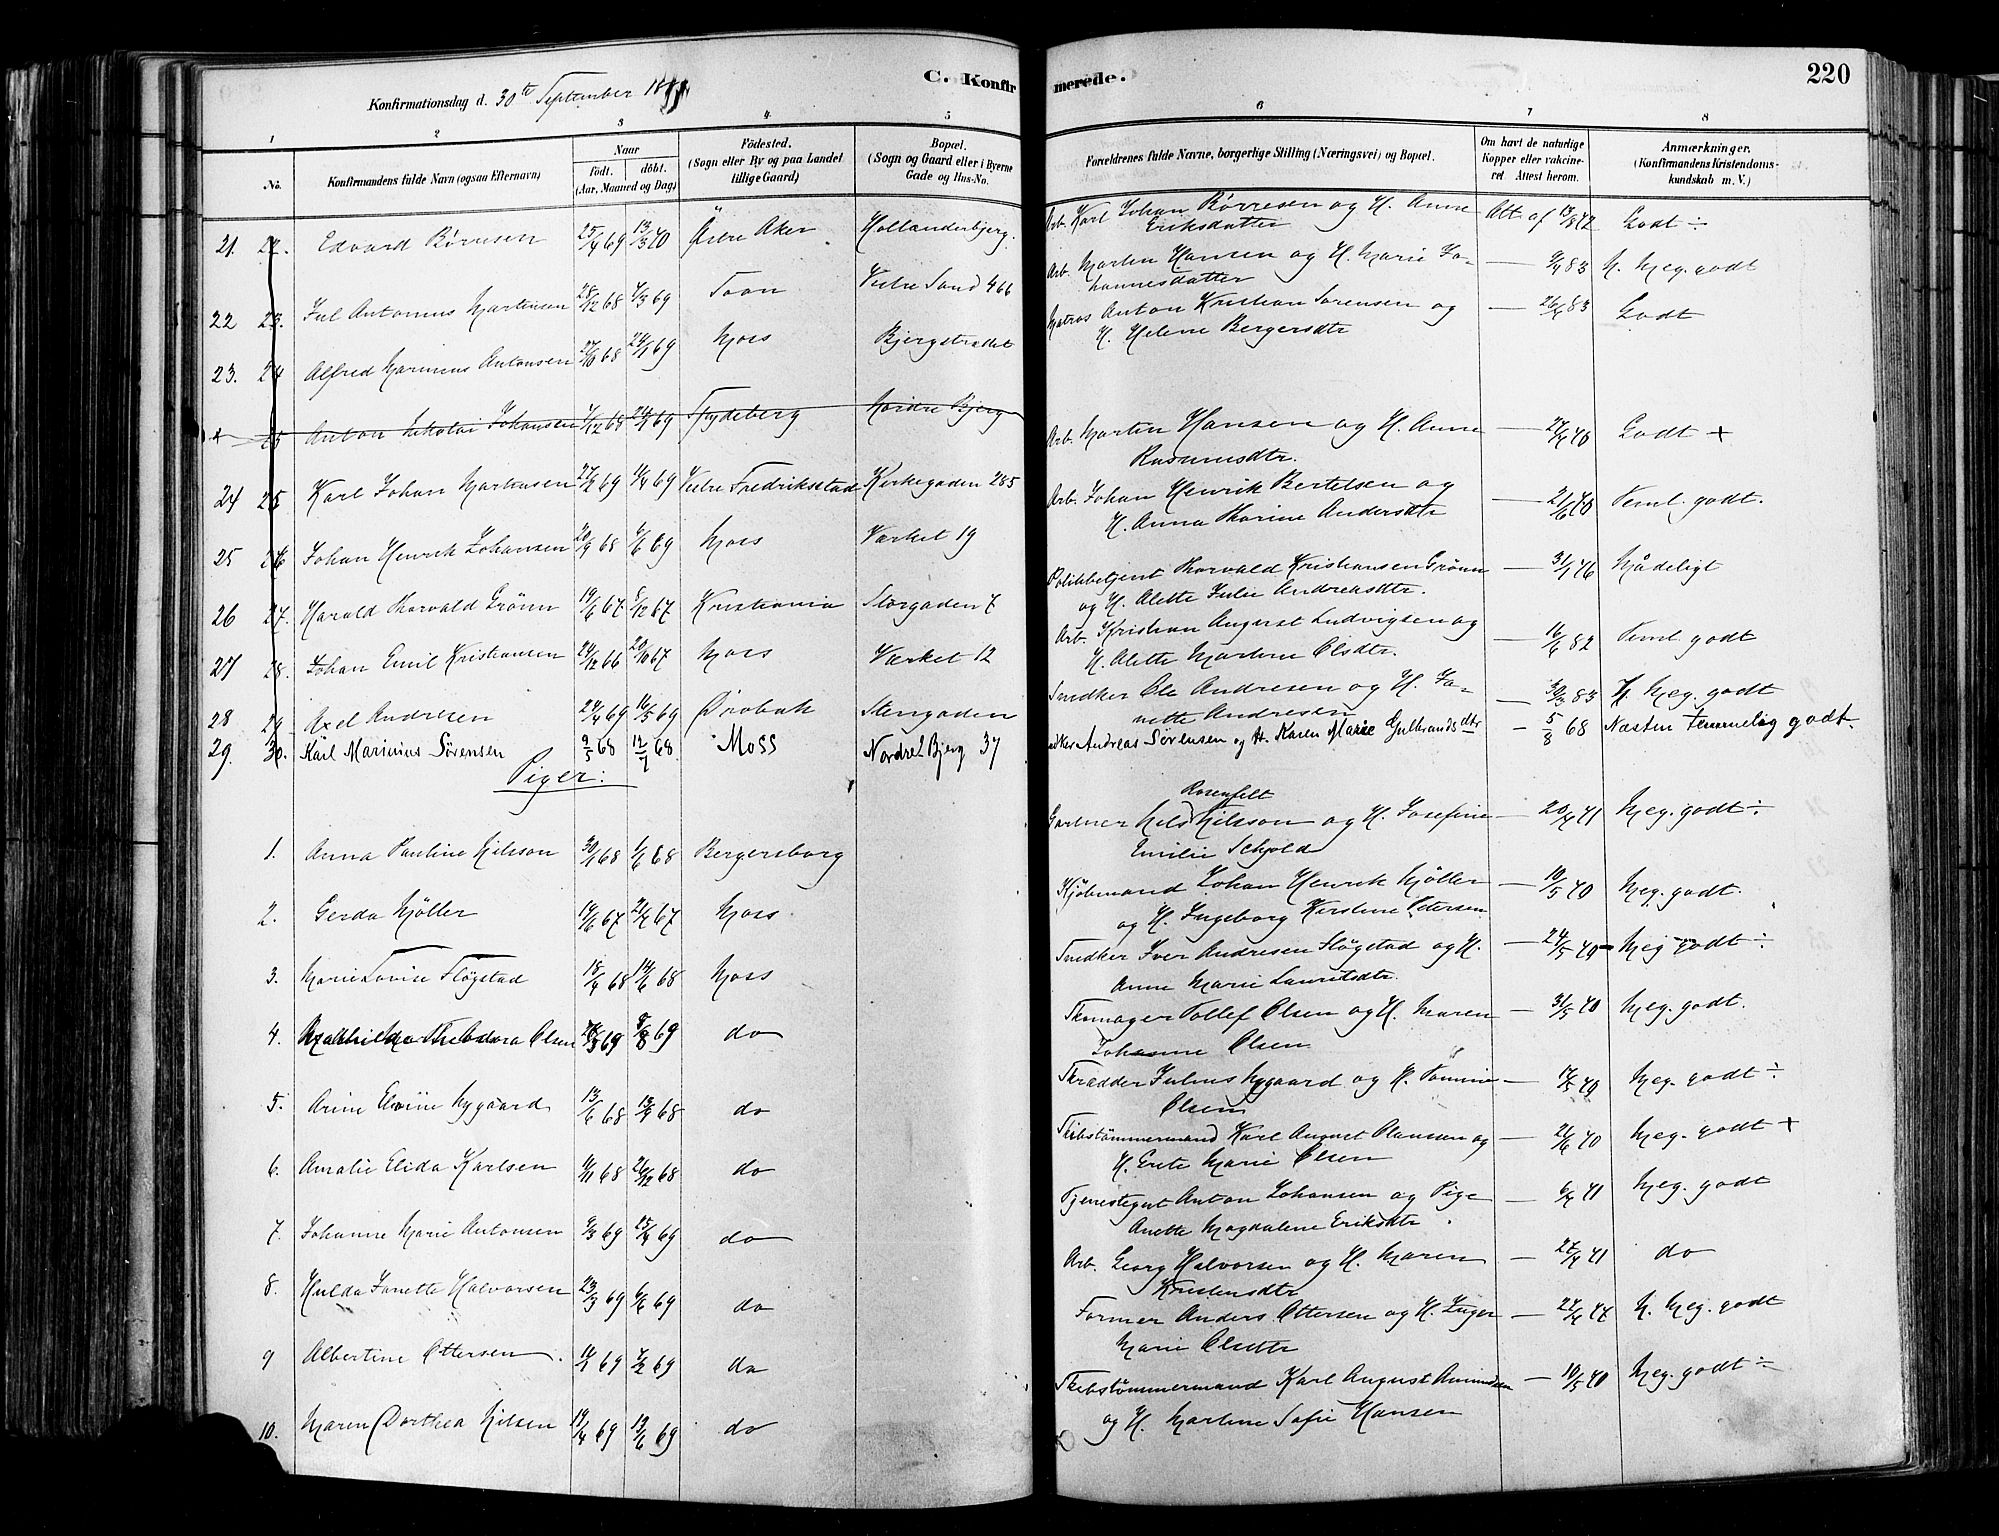 C. Konfirmerede.
220
Konfirmationsdag d. 30te September 18
1 2 3 4 5 6 7 8
No.
Konfirmandens fulde Navn (ogsaa Efternavn)
Naar
födt. döbt.
(Aar, Maaned og Dag)
Födested.
(Sogn eller By og paa Landet
tillige Gaard)
Bopæl.
(Sogn og Gaard eller i Byerne
Gade og Hus-No.
Forældrenes fulde Navne, borgerlige Stilling (Næringsvei) og Bopæl.
Om havt de naturlige
Kopper eller vakcine-
ret. Attest herom.
Anmærkninger.
(Konfirmandens Kristendoms-
kundskab m. V.)
21. 22. Edvard Börresen 25/4 69 13/3 70 Östre Aker Hollanderbjerg.
Arb. Karl Johan Börresen og H. Anne Att. af 13/8 72 Godt ÷
Eriksdatter
22 23. Jul Antonius Martinsen 28/12 68 7/3 69 Soon Vestre Sand 466
Arb. Martin Hansen og H. Marie Jo- — 9/4 83 N. Meg. godt
hannesdatter
23. 24 Alfred Marinius Antonsen 27/10 68 24/1 69 Moss Bjergstrædet
Matros Anton Kristian Sorensen og — 26/4 83 Godt
H. Helene Bergersdtr
Anton Nikolai Johansen 7/12 68 69 Spydeberg Nordre Bjerg
24 25 Karl Johan Martinsen 27/2 69 11/4 69 Vestre Fredriksstad Kirkegaden 285
Arb. Martin Hansen og H. Anne — 27/4 70 Godt +
Rasmusdtr.
25 26 Johan Henrik Johansen 20/9 68 6/6 69 Moss Værket 19
Arb. Johan Henrik Bertelsen og — 21/6 70 Teml. godt.
H. Anna Karine Andersdtr
26 27. Harald Thorvald Grönn 19/6 67 8/12 67 Kristiania Storgaden 7
Politibetjent Thorvald Kristiansen Grönn — 31/1 76 Mådeligt
og H. Alette Julie Andreasdtr.
27 28. Johan Emil Kristiansen 24/12 66 20/10 67 Moss Værket 12
Arb. Kristian August Ludvigsen og — 16/6 82 Teml godt
H. Alette Martine Olsdtr.
28 29 Axel Andresen 24/4 69 16/5 69 Dröbak Stengaden
Snedker Ole Andresen og H. Ja- — 30/3 83 N. Meg. godt
nette Andresen
29. 30. Karl Marinius Sörensen 9/5 68 12/7 68 Moss Nordre Bjerg 37
Andreas Sörensen og H. Karen Marie Gulbrandsdtr - 5/8 68 Næsten temmelig godt.
Piger:
1. Anna Pauline Nilsson 30/1 68 1/6 68 Bergersborg
Rosenfelt
Gartner Nils Nilsson og H. Josefine — 20/4 71 Meg. godt ÷
Emilie Schjold
2. Gerda Möller 14/6 67 21/7 67 Moss
Kjöbmand Johan Henrik Möller — 10/5 70 Meg. godt.
og H. Ingeborg Kirstine Petersen
3. Marie Lovise Flögstad 18/4 68 14/6 68 Moss
Snedker Iver Andresen Flögstad og H. — 24/5 70 Meg godt ÷
Anne Marie Lauritsdtr.
4. Theodora Olsen 69 8/8 69 do
Skomager Tollef Olsen og H. Maren — 31/5 70 Meg. godt.
Johanne Olsen
5. Nygaard 13/6 68 13/9 68 do
Skrædder Julius Nygaard og H. — 17/5 70 Meg. godt ÷
Olsen
6. Amalie Elida Karlsen 11/11 68 26/12 68 do
Skibstömmermand Karl August og — 21/6 70 Meg. godt +
H. Grete Marie Olsen
7. Johanne Marie Antonsen 9/3 69 25/4 69 do
Tjenestegut Anton Johansen og Pige — 6/4 71 Meg. godt
Anette Magdalene Eriksdtr.
8. Hulda Janette Halvorsen 23/3 69 6/6 69 do
Arb. Georg Halvorsen og H. Maren — 27/4 71 do
Kristensdtr
9 Albertine Ottersen. 69 7/2 69 do
Former Anders Ottersen og H. Inger — 27/4 77 N. Meg. godt
Marie Olsdtr
10. Maren Dorthea Nilsen 19/4 69 13/6 69 do
Skibstömmermand Karl August — 10/5 70 Meg. godt ÷
og H. Martine Sofie Hansen